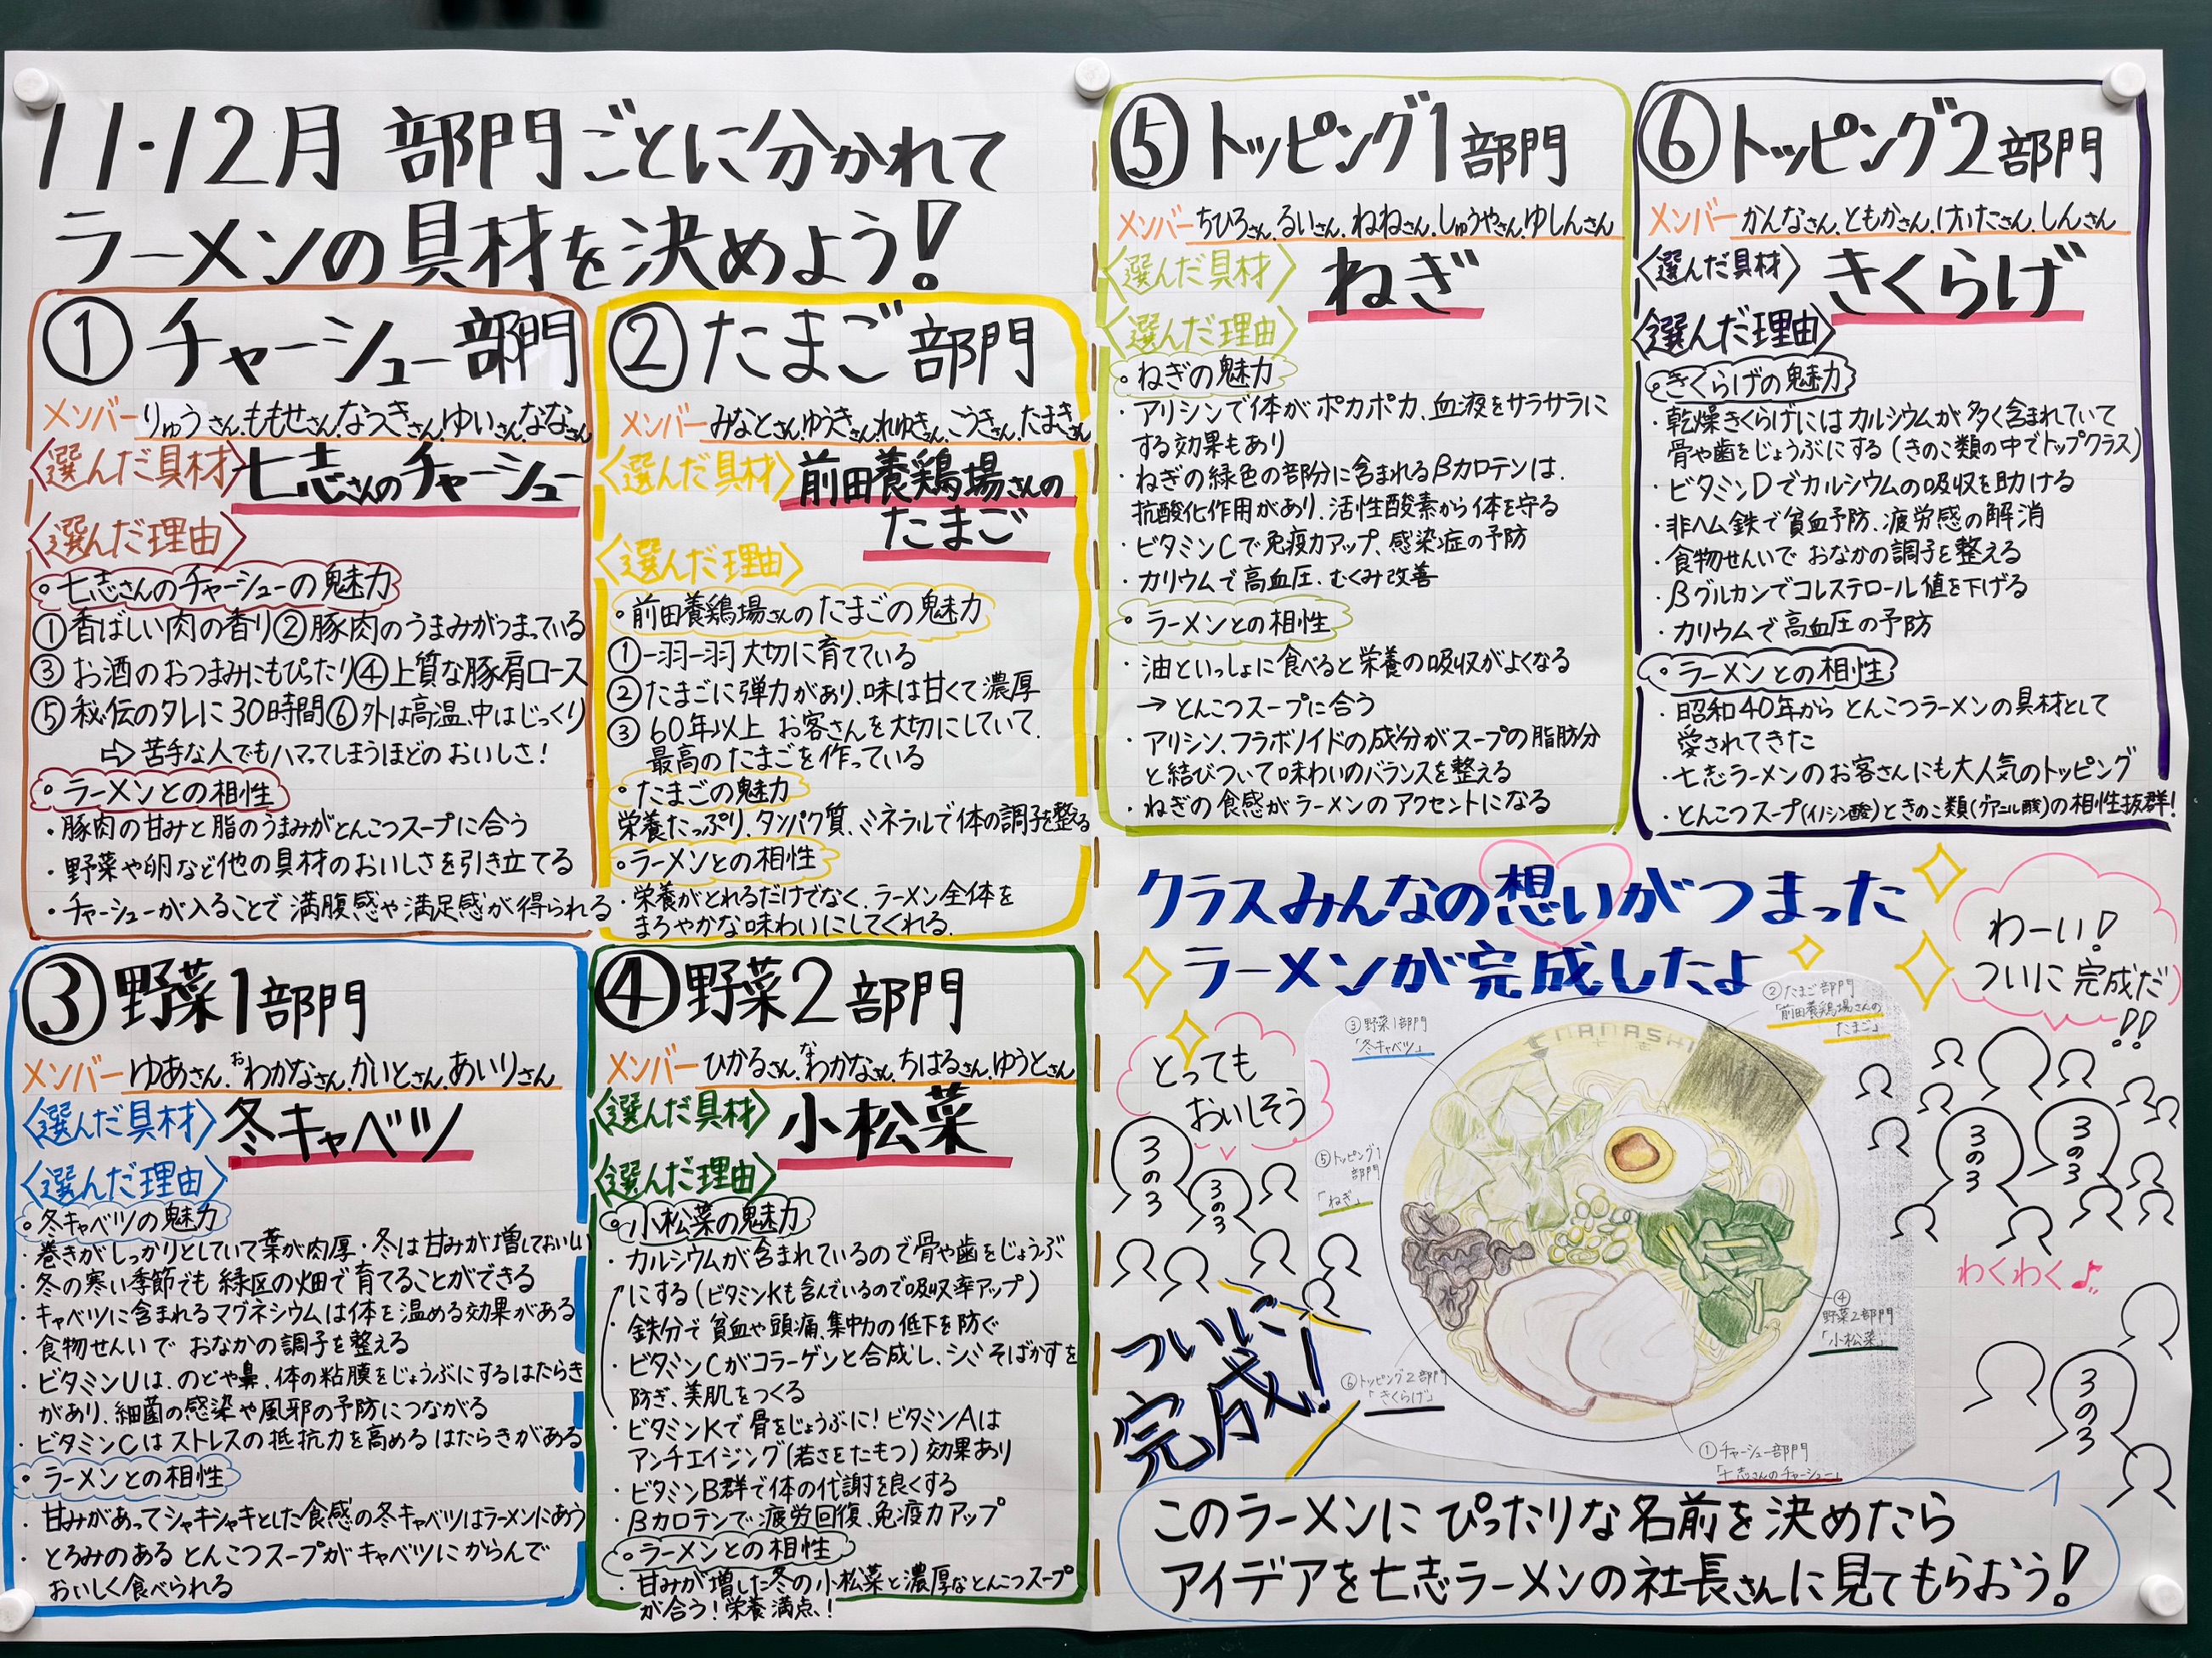 11・12月 部門ごとに分かれて
ラーメンの具材を決めよう!
①チャーシュー部門
メンバー りゅうさん、ももせさん、なつきさん、ゆいさん、ななさん
〈選んだ具材〉七志さんのチャーシュー
〈選んだ理由〉
。七志さんのチャーシューの魅力
①香ばしい肉の香り②豚肉のうまみがつまっている
③お酒のおつまみにもぴったり④上質な豚肩ロース
⑤秘伝のタレに30時間⑥外は高温、中はじっくり
⇨苦手な人でもハマってしまうほどのおいしさ!
。ラーメンとの相性
・豚肉の甘みと脂のうまみがとんこつスープに合う
・野菜や卵など他の具材のおいしさを引き立てる
・チャーシューが入ることで満腹感や満足感が得られる
②たまご部門
メンバー みなとさん、ゆうきさん、れゆきさん、こうきさん、たまきさん
〈選んだ具材〉前田養鶏場さんの
たまご
〈選んだ理由〉
。前田養鶏場さんのたまごの魅力
①一羽一羽大切に育てている
②たまごに弾力があり、味は甘くて濃厚
③60年以上 お客さんを大切にしていて、
最高のたまごを作っている
。たまごの魅力
栄養たっぷり、タンパク質、ミネラルで体の調子を整える
。ラーメンとの相性
・栄養がとれるだけでなく、ラーメン全体を
まろやかな味わいにしてくれる。
③野菜1部門
メンバー ゆあさん、おわかなさん、かいとさん、あいりさん
〈選んだ具材〉冬キャベツ
〈選んだ理由〉
。冬キャベツの魅力
・巻きがしっかりとしていて葉が肉厚・冬は甘みが増しておいしい
・冬の寒い季節でも緑区の畑で育てることができる
・キャベツに含まれるマグネシウムは体を温める効果がある
・食物せんいで おなかの調子を整える
・ビタミンUは、のどや鼻、体の粘膜をじょうぶにするはたらき
があり、細菌の感染や風邪の予防につながる
・ビタミンCはストレスの抵抗力を高めるはたらきがある
。ラーメンとの相性
・甘みがあってシャキシャキとした食感の冬キャベツはラーメンにあう
・とろみのあるとんこつスープがキャベツにからんで
おいしく食べられる
④野菜2部門
メンバー ひかるさん、なわかなさん、ちはるさん、ゆうとさん
〈選んだ具材〉小松菜
〈選んだ理由〉
。小松菜の魅力
・カルシウムが含まれているので骨や歯をじょうぶ
にする(ビタミンKも含んでいるので吸収率アップ)
・鉄分で貧血や頭痛、集中力の低下を防ぐ
・ビタミンCがコラーゲンと合成し、シミそばかすを
防ぎ、美肌をつくる
・ビタミンKで骨をじょうぶに!ビタミンAは
アンチエイジング(若さをたもつ)効果あり
・ビタミンB群で体の代謝を良くする
・βカロテンで疲労回復、免疫力アップ
。ラーメンとの相性
・甘みが増した冬の小松菜と濃厚なとんこつスープ
が合う!栄養満点!
⑤トッピング1部門
メンバー ちひろさん、るいさん、ねねさん、しゅうやさん、ゆしんさん
〈選んだ具材〉ねぎ
〈選んだ理由〉
。ねぎの魅力
・アリシンで体がポカポカ、血液をサラサラに
する効果もあり
・ねぎの緑色の部分に含まれるβカロテンは、
抗酸化作用があり、活性酸素から体を守る
・ビタミンCで免疫力アップ、感染症の予防
・カリウムで高血圧、むくみ改善
。ラーメンとの相性
・油といっしょに食べると栄養の吸収がよくなる
→とんこつスープに合う
・アリシン、フラボノイドの成分がスープの脂肪分
と結びついて味わいのバランスを整える
・ねぎの食感がラーメンのアクセントになる
⑥トッピング2部門
メンバー かんなさん、ともかさん、けいたさん、しんさん
〈選んだ具材〉きくらげ
〈選んだ理由〉
。きくらげの魅力
・乾燥きくらげにはカルシウムが多く含まれていて
骨や歯をじょうぶにする(きのこ類の中でトップクラス)
・ビタミンDでカルシウムの吸収を助ける
・非ヘム鉄で貧血予防、疲労感の解消
・食物せんいで おなかの調子を整える
・βグルカンでコレステロール値を下げる
・カリウムで高血圧の予防
。ラーメンとの相性
・昭和40年からとんこつラーメンの具材として
愛されてきた
・七志ラーメンのお客さんにも大人気のトッピング
・とんこつスープ(イノシン酸)ときのこ類(グアニル酸)の相性抜群!
クラスみんなの想いがつまった
ラーメンが完成したよ
わーい!
ついに完成だ
!!
とっても
おいしそう
3の3
3の3
3の3
3の3
わくわく♪
3の3
ついに
完成!
NANASHI
③野菜1部門
「冬キャベツ」
②たまご部門
「前田養鶏場さんの
たまご」
⑤トッピング1
部門
「ねぎ」
④
野菜2部門
「小松菜」
⑥トッピング2部門
「きくらげ」
①チャーシュー部門
「七志さんのチャーシュー」
このラーメンにぴったりな名前を決めたら
アイデアを七志ラーメンの社長さんに見てもらおう!